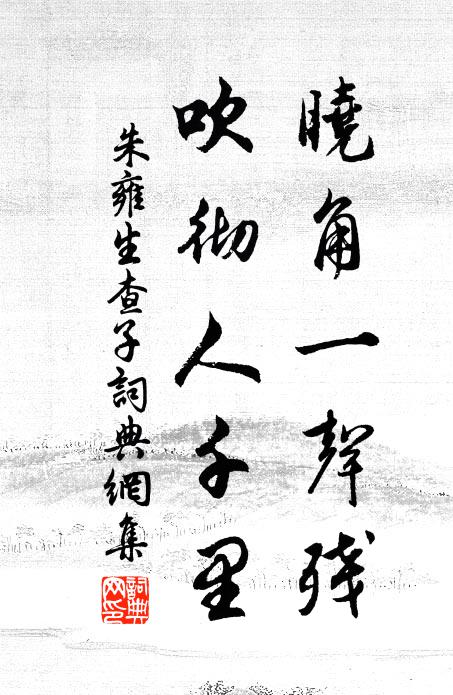 曉角一聲殘
吹彻人千里
朱雍生查子詞典網集
詞典网印